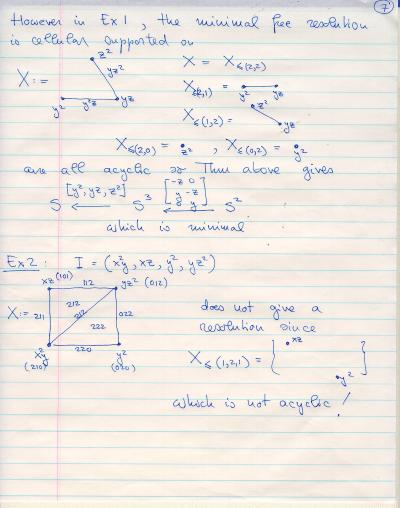 7
However in Ex 1, the minimal free resolution
is cellular supported on
z²
yz²
X :=
y² y²z yz
X = X≤(2,2)
X≤(2,1) = y² yz
X≤(1,2) = z² yz
X≤(2,0) = z² , X≤(0,2) = y²
are all acyclic so Thm above gives
S ← [y², yz, z²] S³ ← [-z 0 y -z y] S²
which is minimal
Ex 2: I = (x²y, xz, y², yz²)
xz (101) 112 yz² (012)
X := 211 212 212 222 022
x²y 220 y²
(210) (020)
does not give a
resolution since
X≤(1,2,1) = { xz y² }
which is not acyclic!